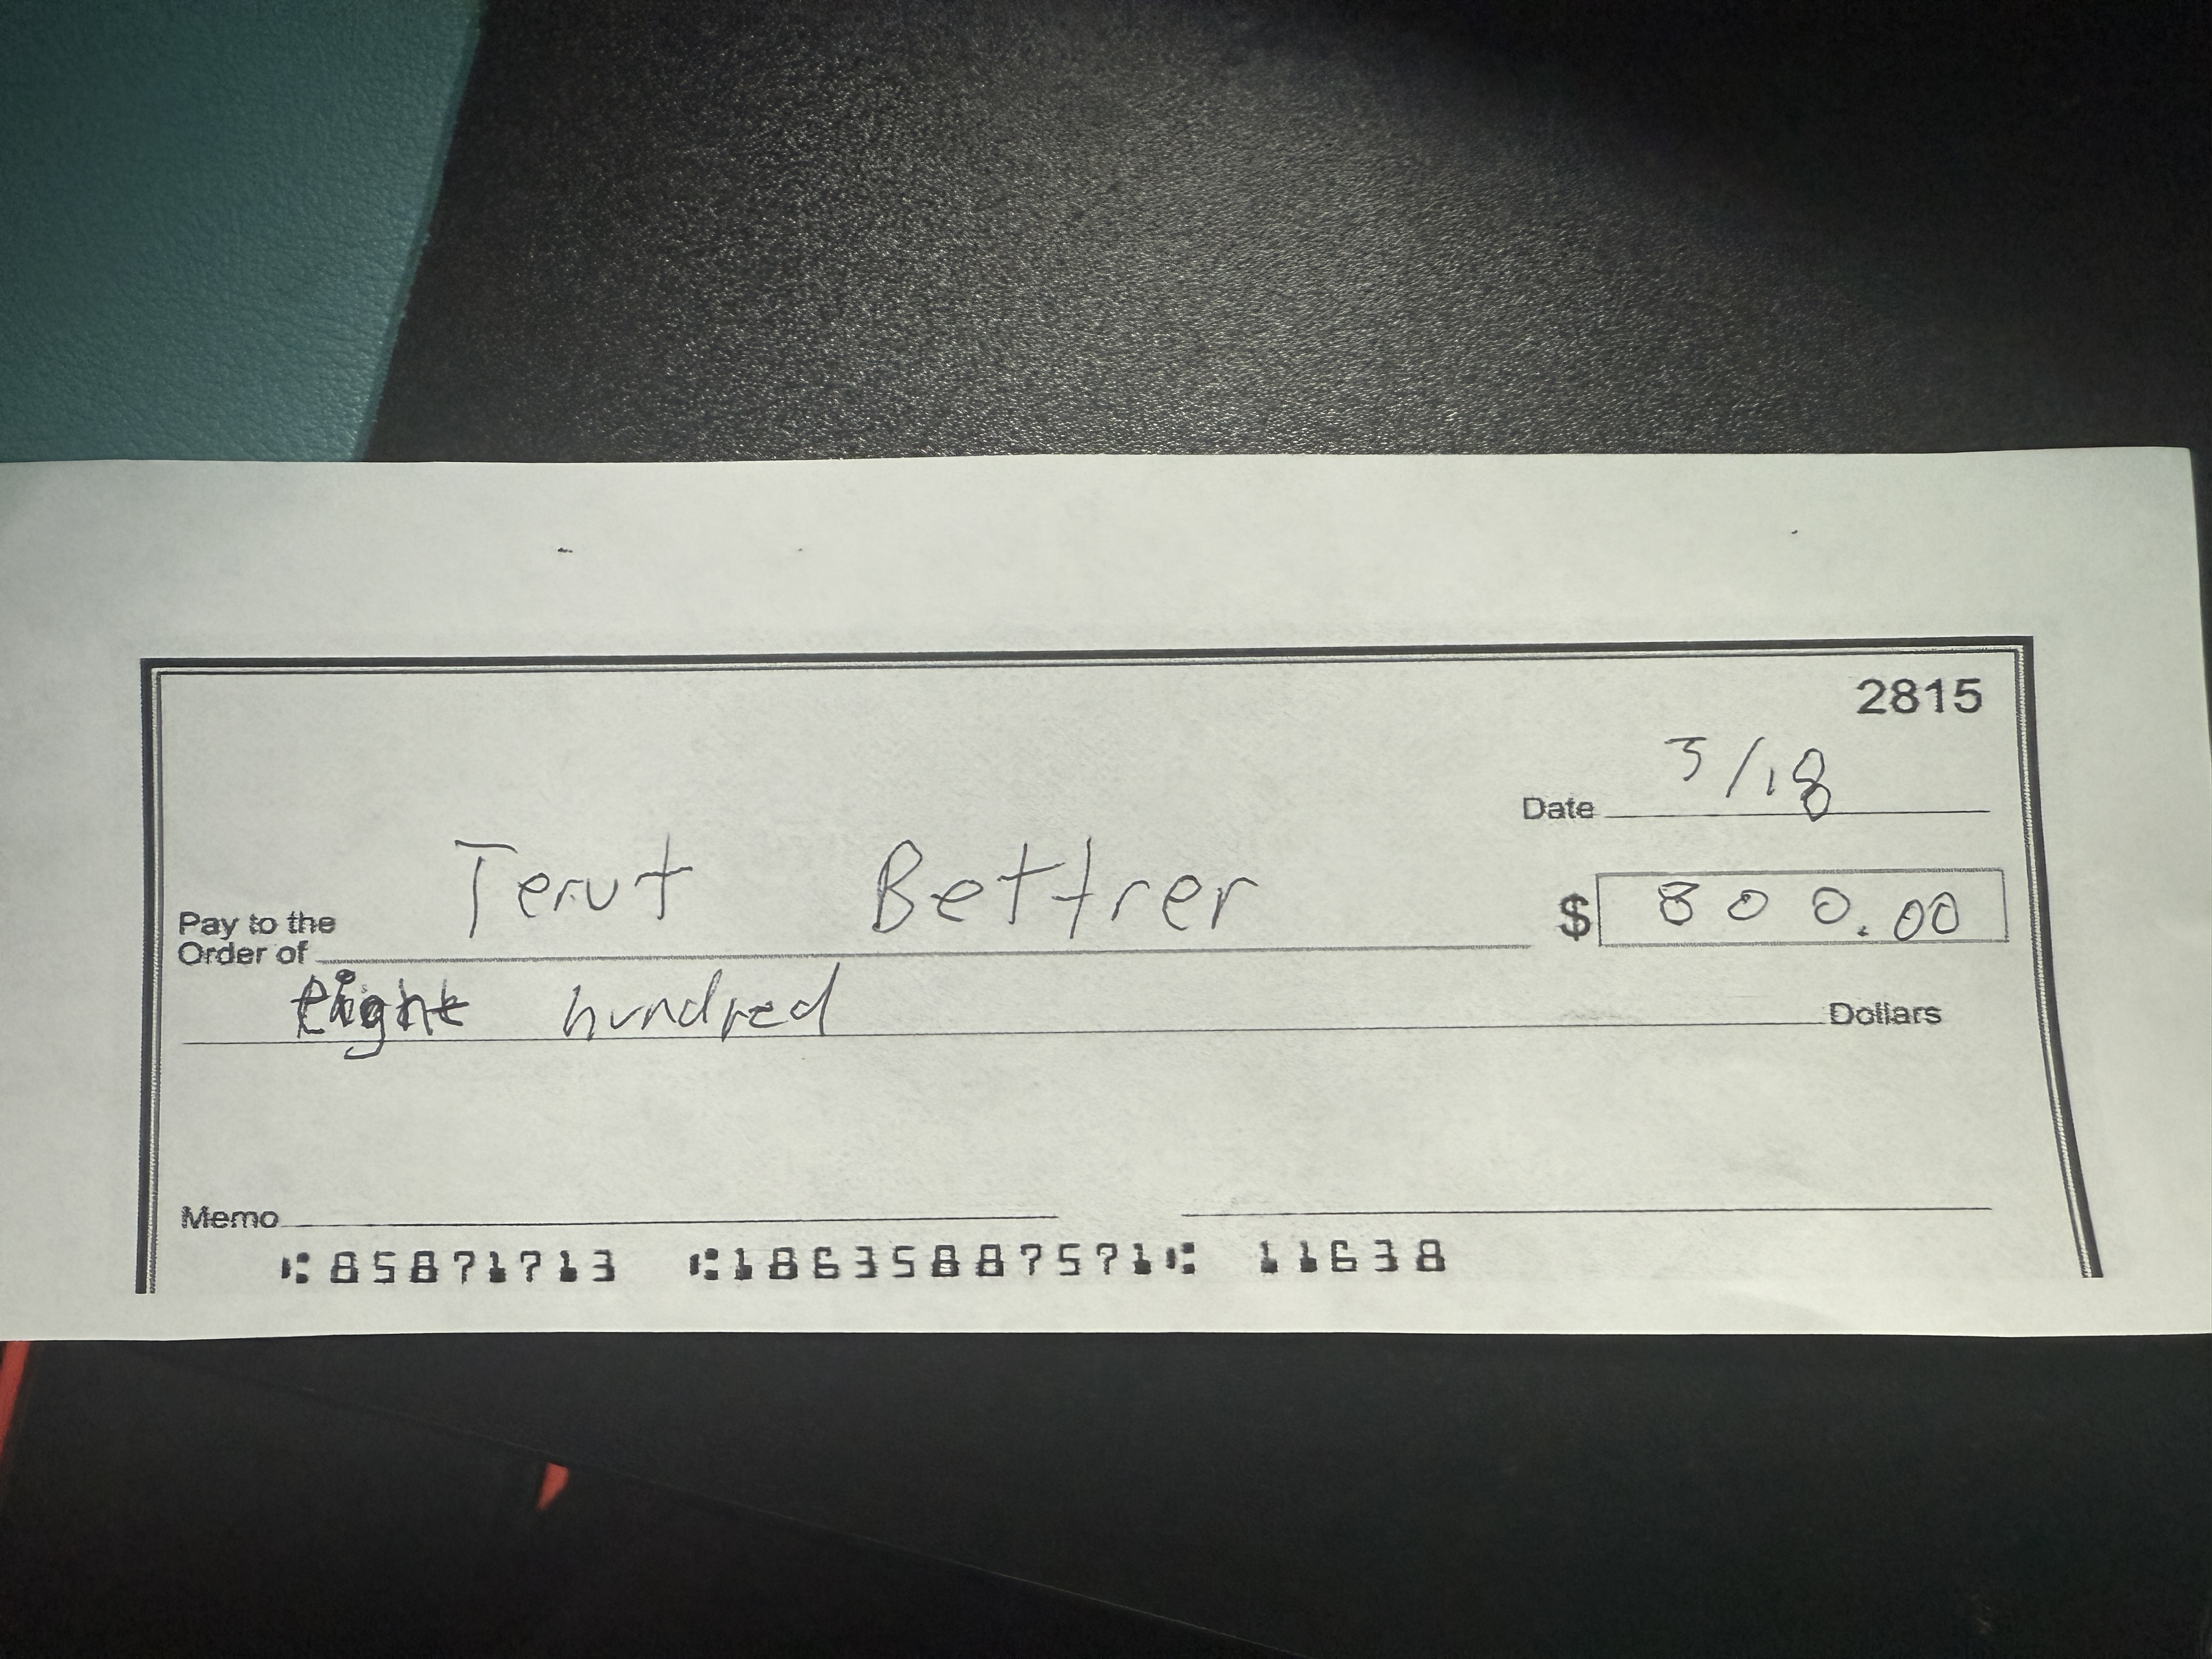 2815
Date 5/18
Pay to the
Order of Terut Bettrer $ 800.00
Eight hundred Dollars
Memo
⑆85871713 ⑆18635887571⑆ 11638